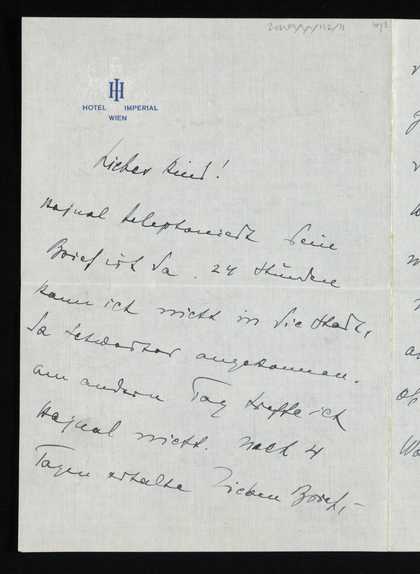 HOTEL IMPERIAL
WIEN
Liebes Kind!
Hajnal telephoniert Dein
Brief ist da. 24 Stunden
kann ich nicht in die Stadt,
da Schwester angekommen.
am andern Tag treffe ich
Hajnal nicht. nach 4
Tagen erhalte lieben Brief,-